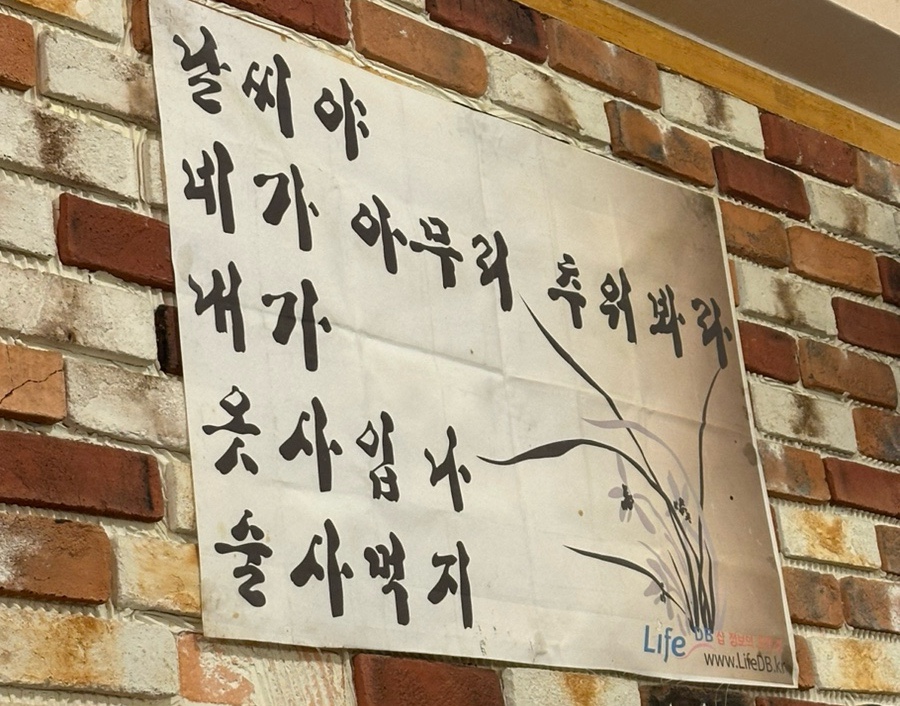 날씨야
비가 아무리 추워봐라
내가
옷사입나
술사먹지
Life DB 삶
www.LifeDB.kr